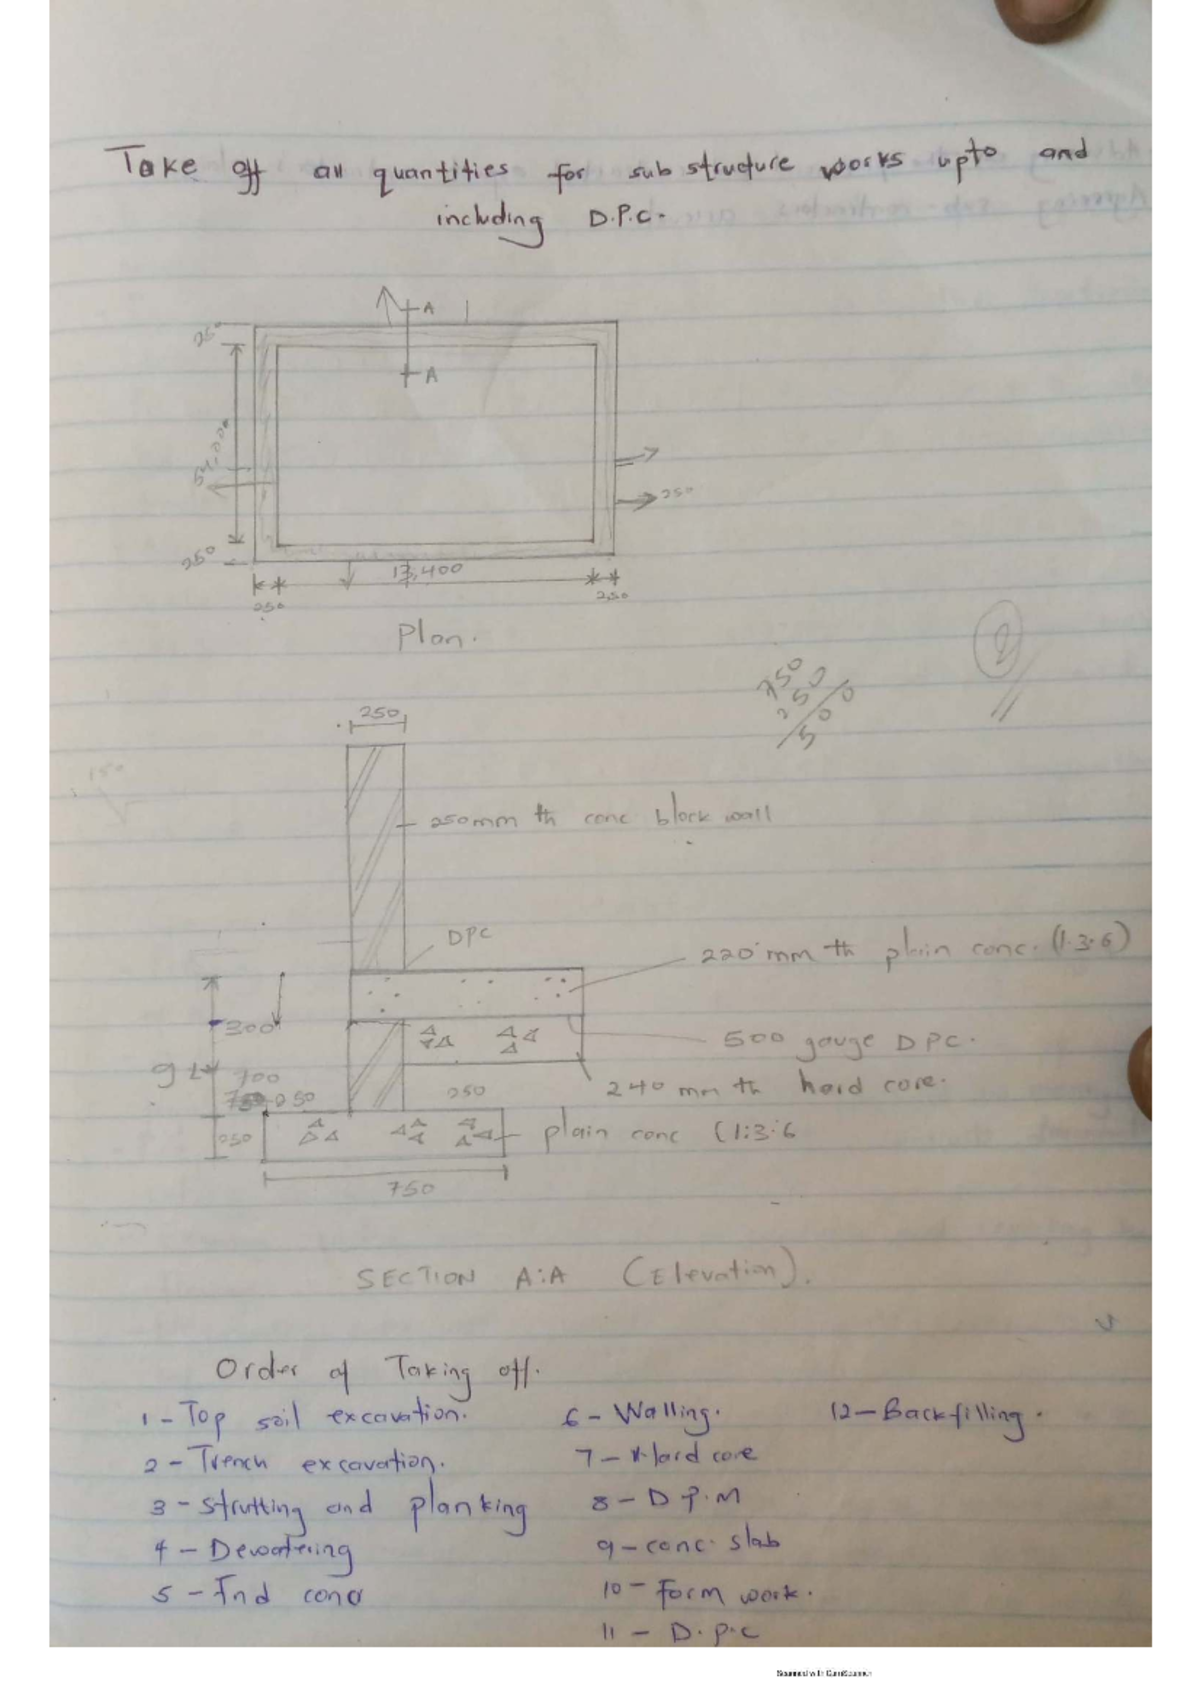 Take off all quantities for sub structure works upto and
including D.P.C.
A
A
250
250
250
17,400
250
250
Plan.
750
250
500
2
250
250mm th conc block wall
DPC
220 mm th plain conc. (1.3.6)
300
500 gauge DPC.
700
240 mm th hard core.
250
250
plain conc (1:3:6
750
SECTION A:A (Elevation).
Order of Taking off.
1 - Top soil excavation.
2 - Trench excavation.
3 - Strutting and planking
4 - Dewatering
5 - Fnd conc
6 - Walling.
7 - Hard core
8 - D P.M
9 - conc. slab
10 - Form work.
11 - D.p.c
12 - Backfilling.
Scanned with CamScanner